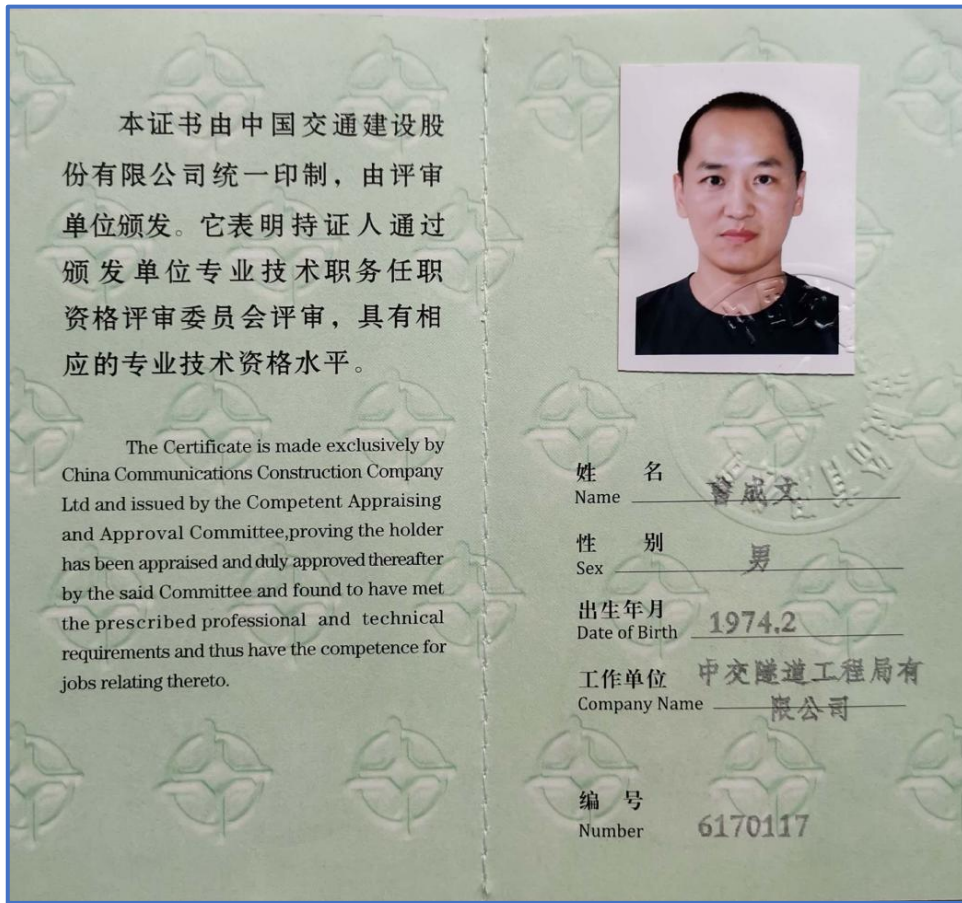 本证书由中国交通建设股
份有限公司统一印制，由评审
单位颁发。它表明持证人通过
颁发单位专业技术职务任职
资格评审委员会评审，具有相
应的专业技术资格水平。
The Certificate is made exclusively by
China Communications Construction Company
Ltd and issued by the Competent Appraising
and Approval Committee,proving the holder
has been appraised and duly approved thereafter
by the said Committee and found to have met
the prescribed professional and technical
requirements and thus have the competence for
jobs relating thereto.
姓 名
Name 曾成文
性 别
Sex 男
出生年月
Date of Birth 1974.2
工作单位 中交隧道工程局有
Company Name 限公司
编 号
Number 6170117